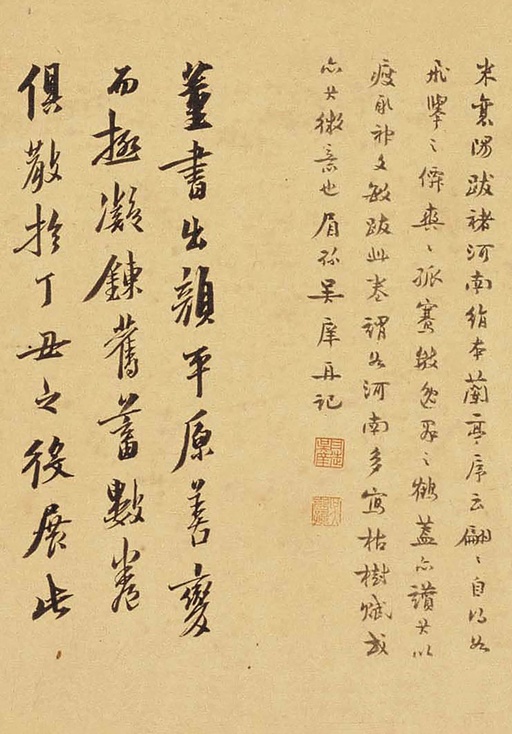 米襄陽跋褚河南絹本蘭亭序云翩々自得如
飛擧之僊爽々孤騫類逸羣之鶴蓋亦讚其以
瘦取神文敏跋此卷謂如河南多寫枯樹賦或
亦其微意也眉孫吴庠再記
董書出顏平原善變
而極凝鍊舊蓄數卷
俱散於丁丑之役展此